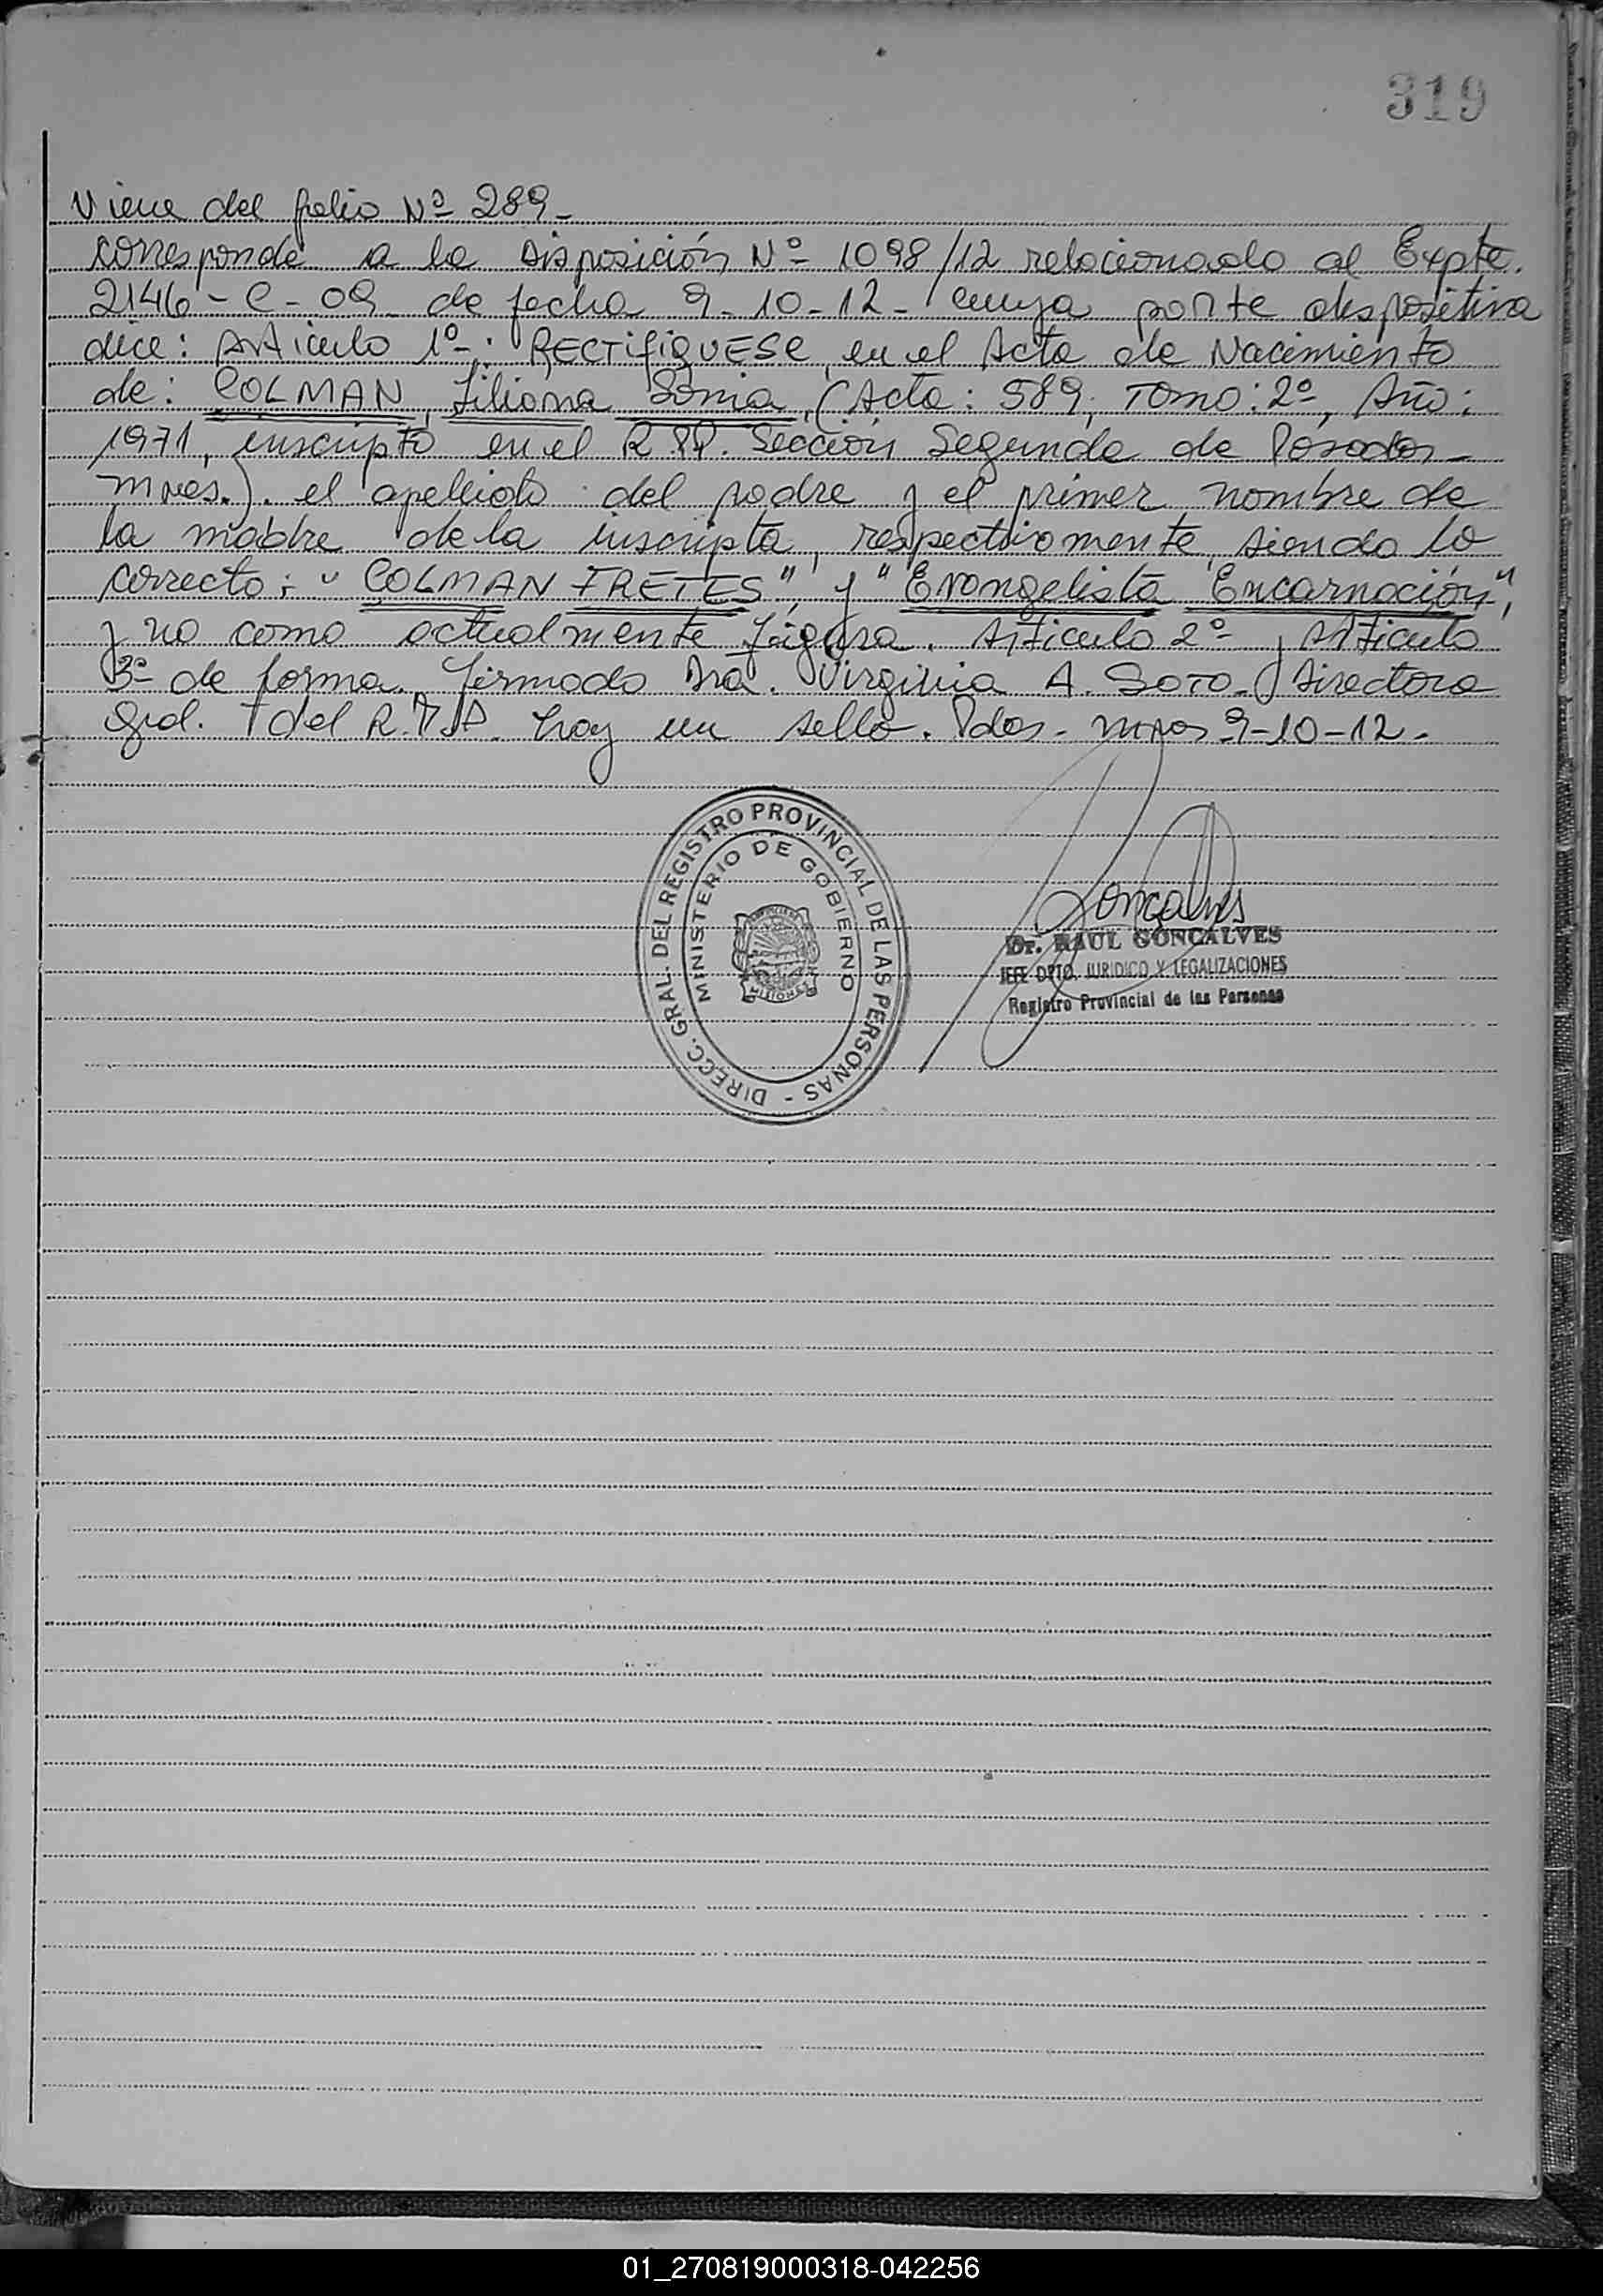 319
Viene del folio Nº 289-
corresponde a la Disposición Nº 1098/12 relacionado al Expte.
2146-C-09 de fecha 9-10-12- cuya parte dispositiva
dice: Articulo 1º-: RECTIFIQUESE en el Acta de Nacimiento
de: COLMAN, Liliana Sonia, (Acta: 589, Tomo: 2º, Año:
1971, inscripta en el R.P.P. Sección Segunda de Posadas-
Mnes.). el apellido del padre y el primer nombre de
la madre de la inscripta, respectivamente, siendo lo
correcto: "COLMAN FRETES", y "Evangelista Encarnación",
y no como actualmente figura. Articulo 2º y Articulo
3º de forma. Firmado Dra. Virginia A. Soto- Directora
Gral. del R.P.P. hay un sello. Pdas- Mnes 9-10-12-
DIRECC. GRAL. DEL REGISTRO PROVINCIAL DE LAS PERSONAS -
MINISTERIO DE GOBIERNO
MISIONES
Goncalves
Dr. RAUL GONCALVES
JEFE DPTO. JURIDICO Y LEGALIZACIONES
Registro Provincial de las Personas
01_270819000318-042256